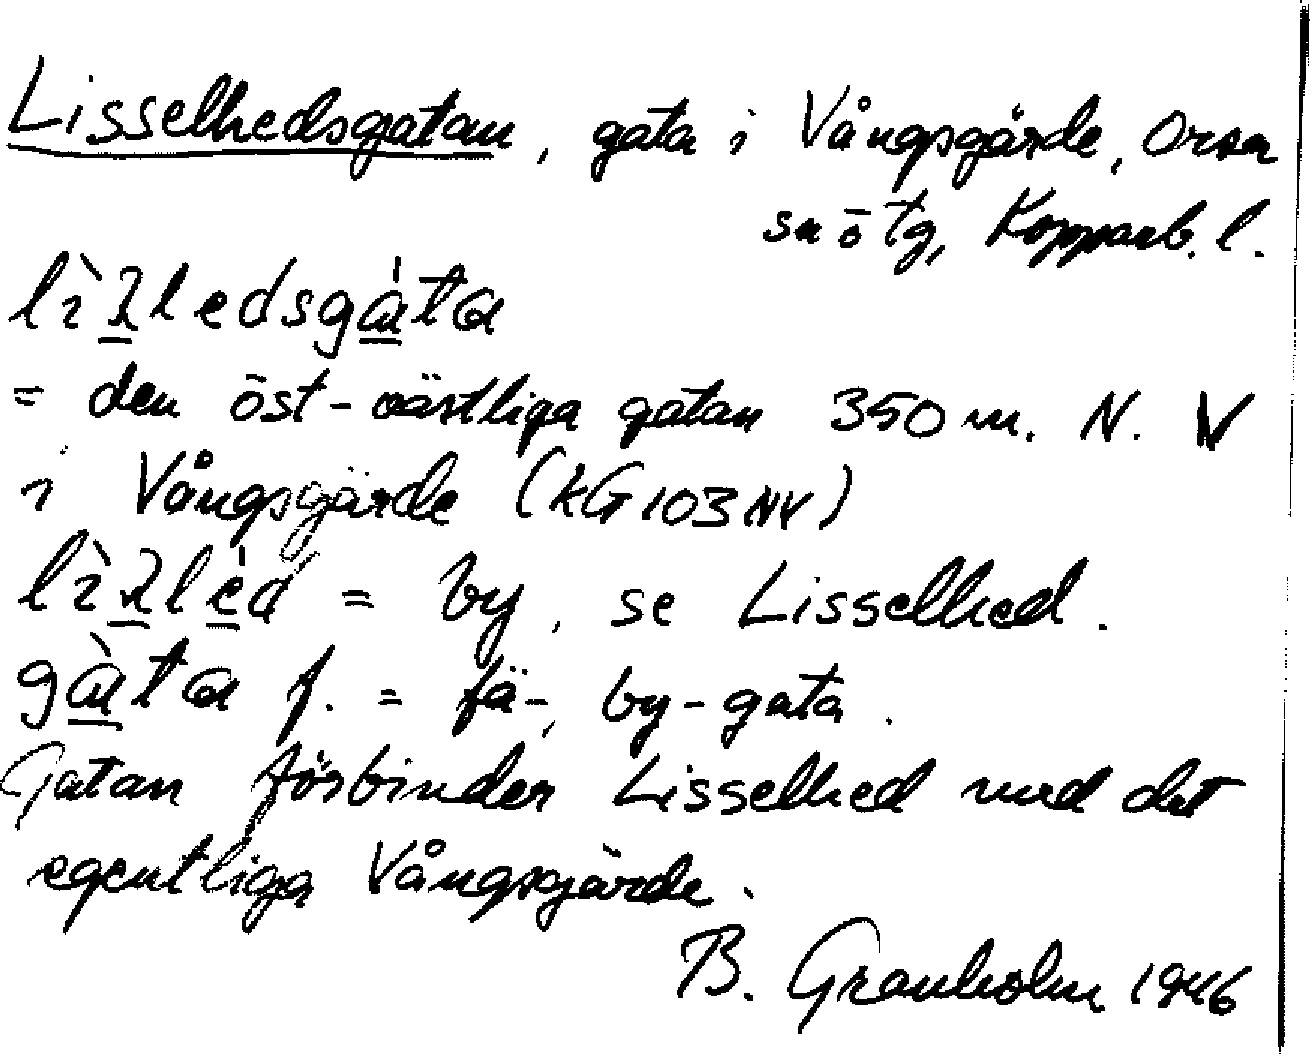 Lisselhedsgatan, gata i Vångsgärde, Orsa
sn ö tg, Kopparb. l.
= den öst-västliga gatan 350 m. N. V
i Vångsgärde (KG 103 NV)
= by, se Lisselhed.
gàta f. = fä-, by-gata.
Gatan förbinder Lisselhed med det
egentliga Vångsgärde.
B. Granholm 1946